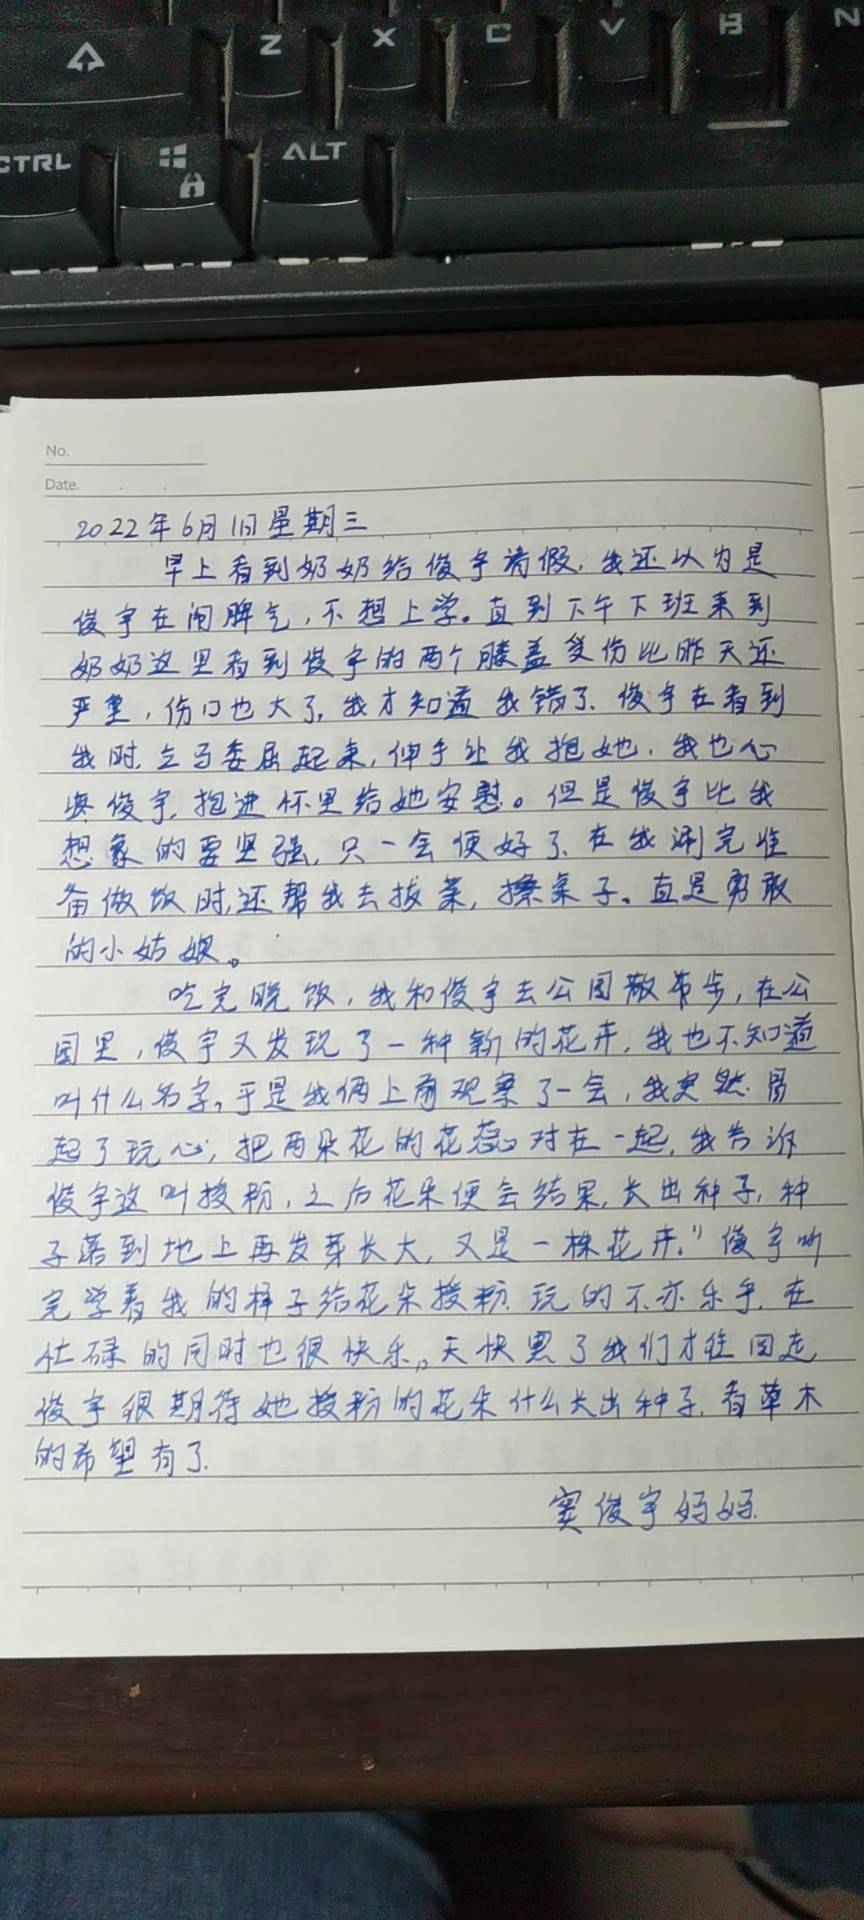 Z X C V B N
CTRL ALT
No.
Date.
2022年6月1日星期三
早上看到奶奶给俊宇请假,我还以为是
俊宇在闹脾气,不想上学。直到下午下班来到
奶奶这里看到俊宇的两个膝盖受伤比昨天还
严重,伤口也大了,我才知道我错了.俊宇在看到
我时,立马委屈起来,伸手让我抱她,我也心
疼俊宇,抱进怀里给她安慰。但是俊宇比我
想象的要坚强,只一会便好了.在我涮完准
备做饭时,还帮我去拔菜,擦桌子。真是勇敢
的小姑娘。
吃完晚饭,我和俊宇去公园散步,在公
园里,俊宇又发现了一种新的花卉,我也不知道
叫什么名字,于是我俩上前观察了一会,我突然
起了玩心,把两朵花的花蕊对在一起,我告诉
俊宇这叫授粉,之后花朵便会结果,长出种子,种
子落到地上再发芽长大,又是一株花卉。"俊宇听
完学着我的样子给花朵授粉.玩的不亦乐乎.在
忙碌的同时也很快乐。天快黑了我们才往回走
俊宇很期待她授粉的花朵什么长出种子.看草木
的希望有了.
窦俊宇妈妈.